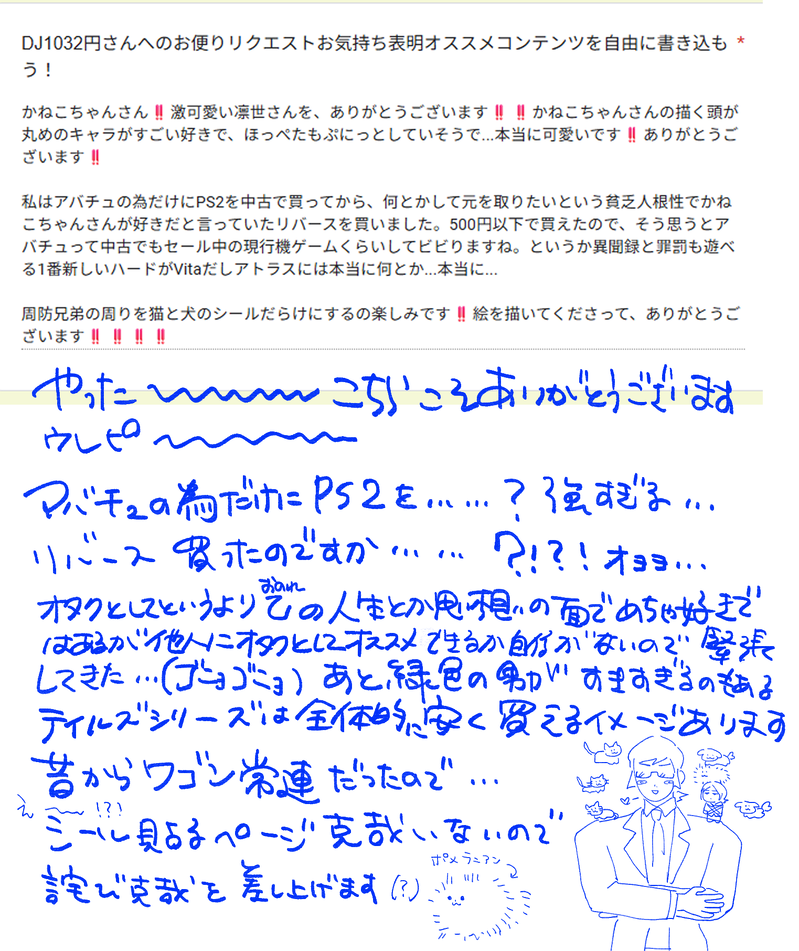 DJ1032円さんへのお便りリクエストお気持ち表明オススメコンテンツを自由に書き込も *
う！
かねこちゃんさん‼️激可愛い凛世さんを、ありがとうございます‼️‼️かねこちゃんさんの描く頭が
丸めのキャラがすごい好きで、ほっぺたもぷにっとしていそうで...本当に可愛いです‼️ありがとうご
ざいます‼️
私はアバチュの為だけにPS2を中古で買ってから、何とかして元を取りたいという貧乏人根性でかね
こちゃんさんが好きだと言っていたリバースを買いました。500円以下で買えたので、そう思うとア
バチュって中古でもセール中の現行機ゲームくらいしてビビりますね。というか異聞録と罪罰も遊べ
る1番新しいハードがVitaだしアトラスには本当に何とか...本当に...
周防兄弟の周りを猫と犬のシールだらけにするの楽しみです‼️絵を描いてくださって、ありがとうご
ざいます‼️‼️‼️‼️
やった〜〜〜〜〜こちらこそありがとうございます
ウレピ〜〜〜〜〜
アバチュの為だけにPS2を……？強すぎる…
リバース買ったのですか……?!?!オョョ…
おのれ
オタクとしてというより己の人生とか思想の面でめちゃ好きで
はあるが他人にオタクとしてオススメできるか自信がないので緊張
してきた…(ゴニョゴニョ)あと緑色の男がすきすぎるのもある
テイルズシリーズは全体的に安く買えるイメージあります
昔からワゴン常連だったので…
え〜〜!?!
シール貼るページ克哉いないので
詫び克哉を差し上げます(?)
ポメラニアン